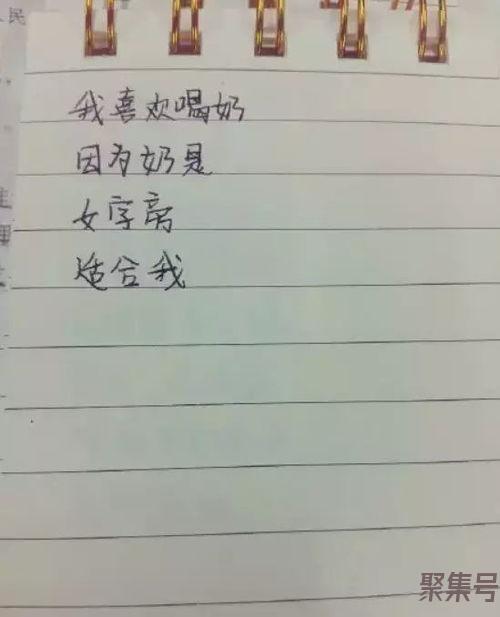 民
我喜欢喝奶
因为奶是
女字旁
适合我
理
聚集号